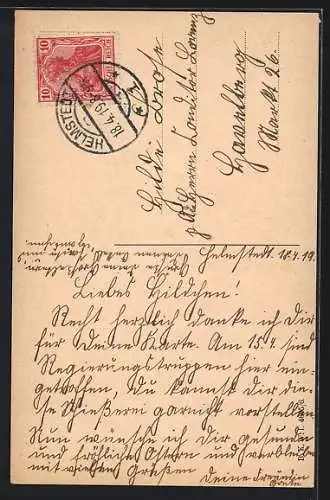 Helmstedt, 18.4.19.
Liebes Hildchen!
Recht herzlich danke ich Dir
für Deine Karte. Am 15.4. sind
Regierungstruppen hier ein-
getroffen, Du kannst Dir die-
se Schießerei garnicht vorstellen.
Nun wünsche ich Dir gesunde
und fröhliche Ostern und verbleibe
mit vielen Grüßen
Deine Freundin
Grete.
Hilde
Herrn Konditor
Havelberg
Markt 26.
HELMSTEDT
18.4.19
10 10